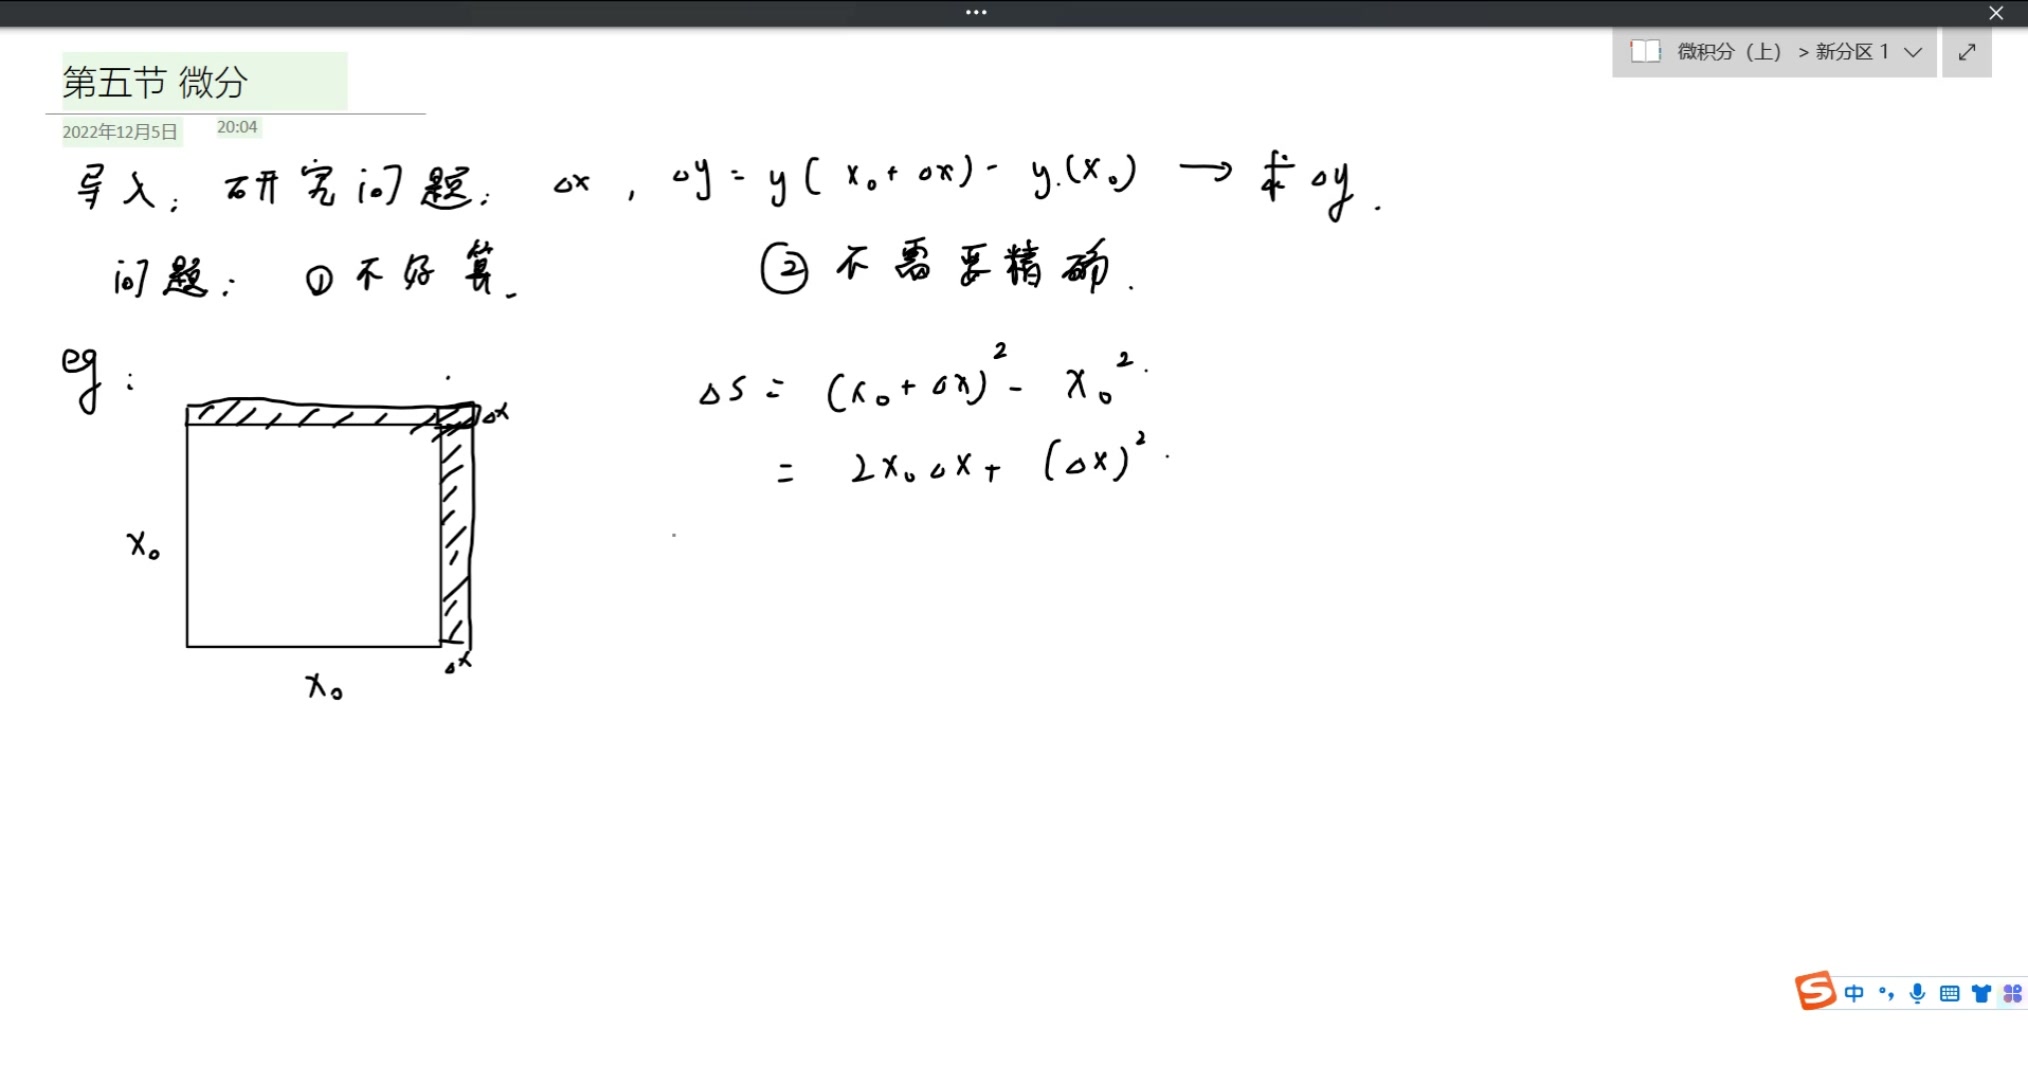 微积分（上） > 新分区 1
第五节 微分
2022年12月5日 20:04
导入: 研究问题: Δx , Δy = y(x₀+Δx) - y(x₀) → 求Δy.
问题: ① 不好算. ② 不需要精确.
eg:
ΔS = (x₀+Δx)² - x₀²
= 2x₀Δx + (Δx)²
Δx
x₀
Δx
x₀
中